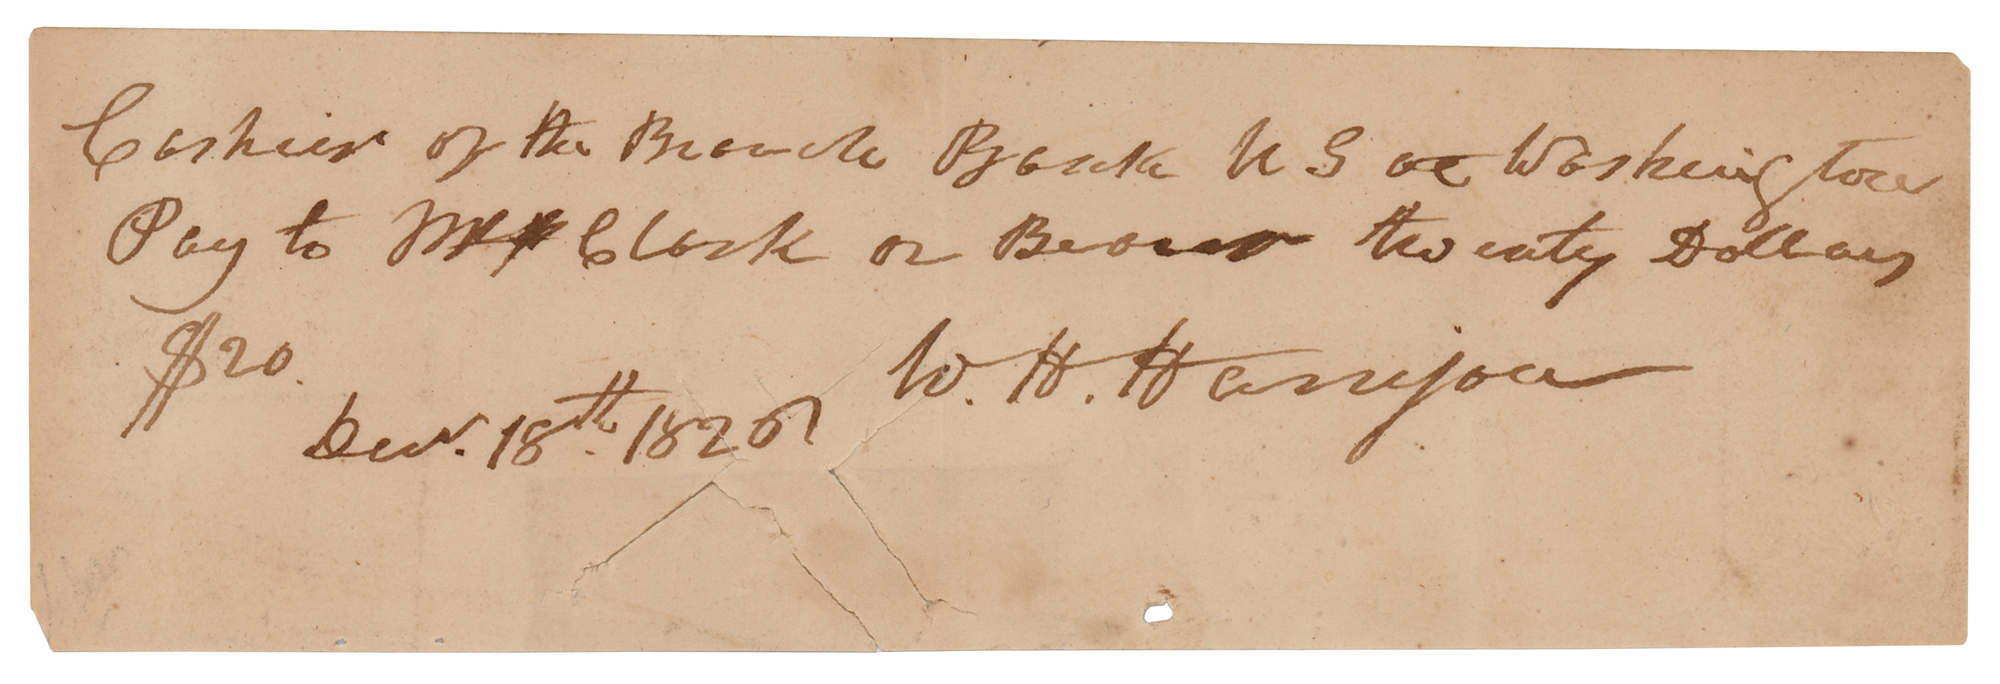 Cashier of the Branch Bank U S at Washington
Pay to Mr Clark or Bearer twenty Dollars
$20.
W. H. Harrison
Decr. 18th. 1826